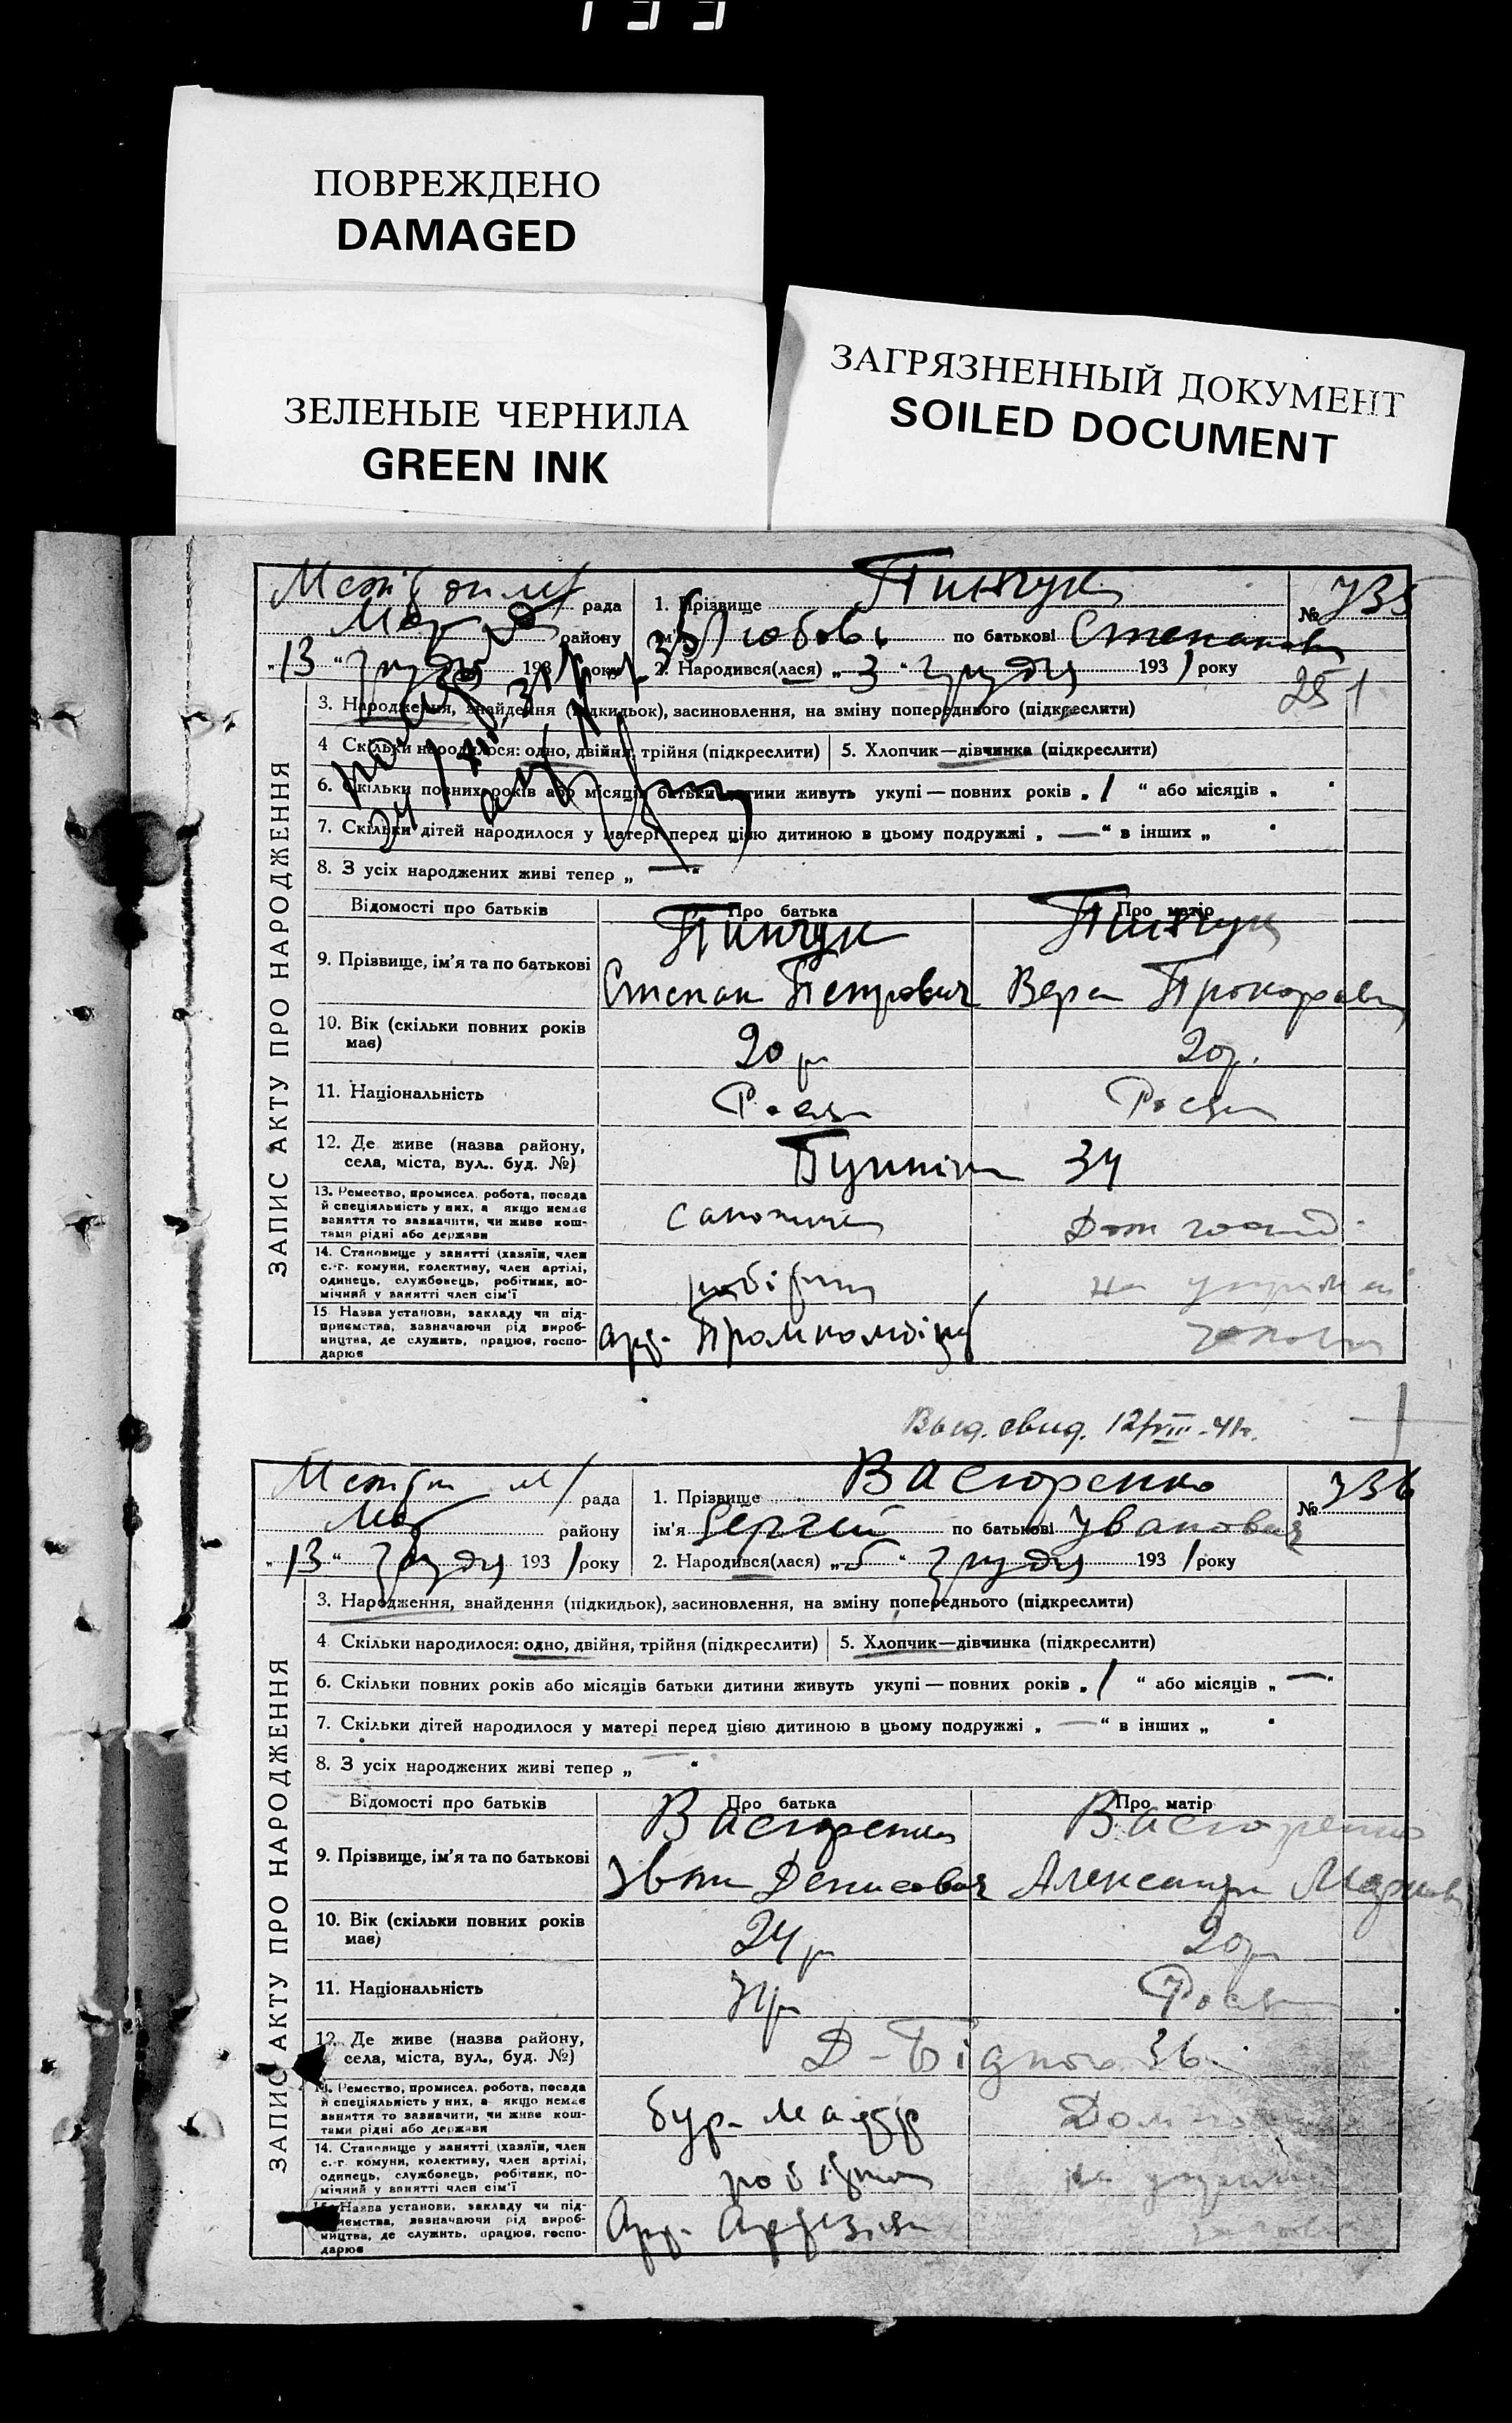 133
ПОВРЕЖДЕНО
DAMAGED
ЗЕЛЕНЫЕ ЧЕРНИЛА
GREEN INK
ЗАГРЯЗНЕННЫЙ ДОКУМЕНТ
SOILED DOCUMENT
ЗАПИС АКТУ ПРО НАРОДЖЕННЯ
рада
району
„13“ грудня 1931 року
1. Прізвище Пинчук
№ 735
ім'я Любовь по батькові Степановн
2. Народився(лася) „3“ грудня 1931 року
251
3. Народження, знайдення (підкидьок), засиновлення, на зміну попереднього (підкреслити)
4 Скільки народилося: одно, двійня, трійня (підкреслити)
5. Хлопчик—дівчинка (підкреслити)
6. Скільки повних років або місяців батьки дитини живуть укупі — повних років „1“ або місяців „
7. Скільки дітей народилося у матері перед цією дитиною в цьому подружжі „—“ в інших „
8. З усіх народжених живі тепер „—“
Відомості про батьків
Про батька
Про матір
9. Прізвище, ім'я та по батькові
Пинчук
Степан Петрович
Пинчук
Вера Прокоровн
10. Вік (скільки повних років має)
20 р
20 р.
11. Національність
Росян
Росян
12. Де живе (назва району, села, міста, вул.. буд. №)
34
13. Ремество, промисел, робота, посада й спеціяльність у них, а якщо немає заняття то зазначити, чи живе коштами рідні або держави
Дом госпид.
14. Становище у занятті (хазяїн, член с.-г. комуни, колективу, член артілі, одинець, службовець, робітник, помічний у занятті член сім'ї
робітник
15. Назва установи, закладу чи підприємства, зазначаючи рід виробництва, де служить, працює, господарює
Выд. свид. 12/VIII-41г.
ЗАПИС АКТУ ПРО НАРОДЖЕННЯ
рада
району
„13“ грудня 1931 року
1. Прізвище Васюренко
№ 736
ім'я Сергій по батькові Іванович
2. Народився(лася) „5“ грудня 1931 року
3. Народження, знайдення (підкидьок), засиновлення, на зміну попереднього (підкреслити)
4 Скільки народилося: одно, двійня, трійня (підкреслити)
5. Хлопчик—дівчинка (підкреслити)
6. Скільки повних років або місяців батьки дитини живуть укупі — повних років „1“ або місяців „—“
7. Скільки дітей народилося у матері перед цією дитиною в цьому подружжі „—“ в інших „
8. З усіх народжених живі тепер „—“
Відомості про батьків
Про батька
Про матір
9. Прізвище, ім'я та по батькові
Васюренко
Іван Денисович
Васюренко
Александра
10. Вік (скільки повних років має)
24 р
20 р
11. Національність
Укр
Росян
12. Де живе (назва району, села, міста, вул., буд. №)
Д-Бідного 36
13. Ремество, промисел, робота, посада й спеціяльність у них, а якщо немає заняття то зазначити, чи живе коштами рідні або держави
бур. майстр
14. Становище у занятті (хазяїн, член с.-г. комуни, колективу, член артілі, одинець, службовець, робітник, помічний у занятті член сім'ї
робітник
15. Назва установи, закладу чи підприємства, зазначаючи рід виробництва, де служить, працює, господарює